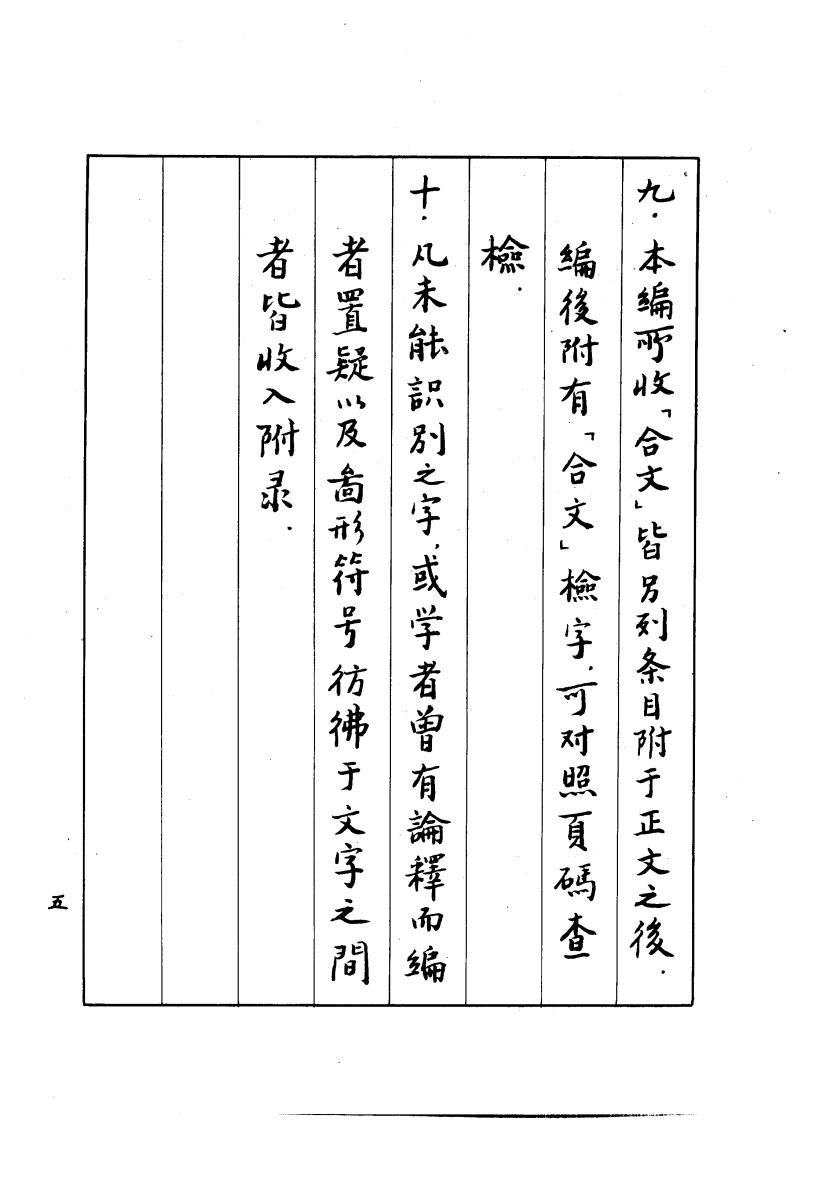 九．本編所收「合文」皆另列条目附于正文之後．
編後附有「合文」檢字，可对照頁碼查
檢．
十．凡未能識別之字，或学者曾有論釋而編
者置疑以及啚形符号彷彿于文字之間
者皆收入附录．
五